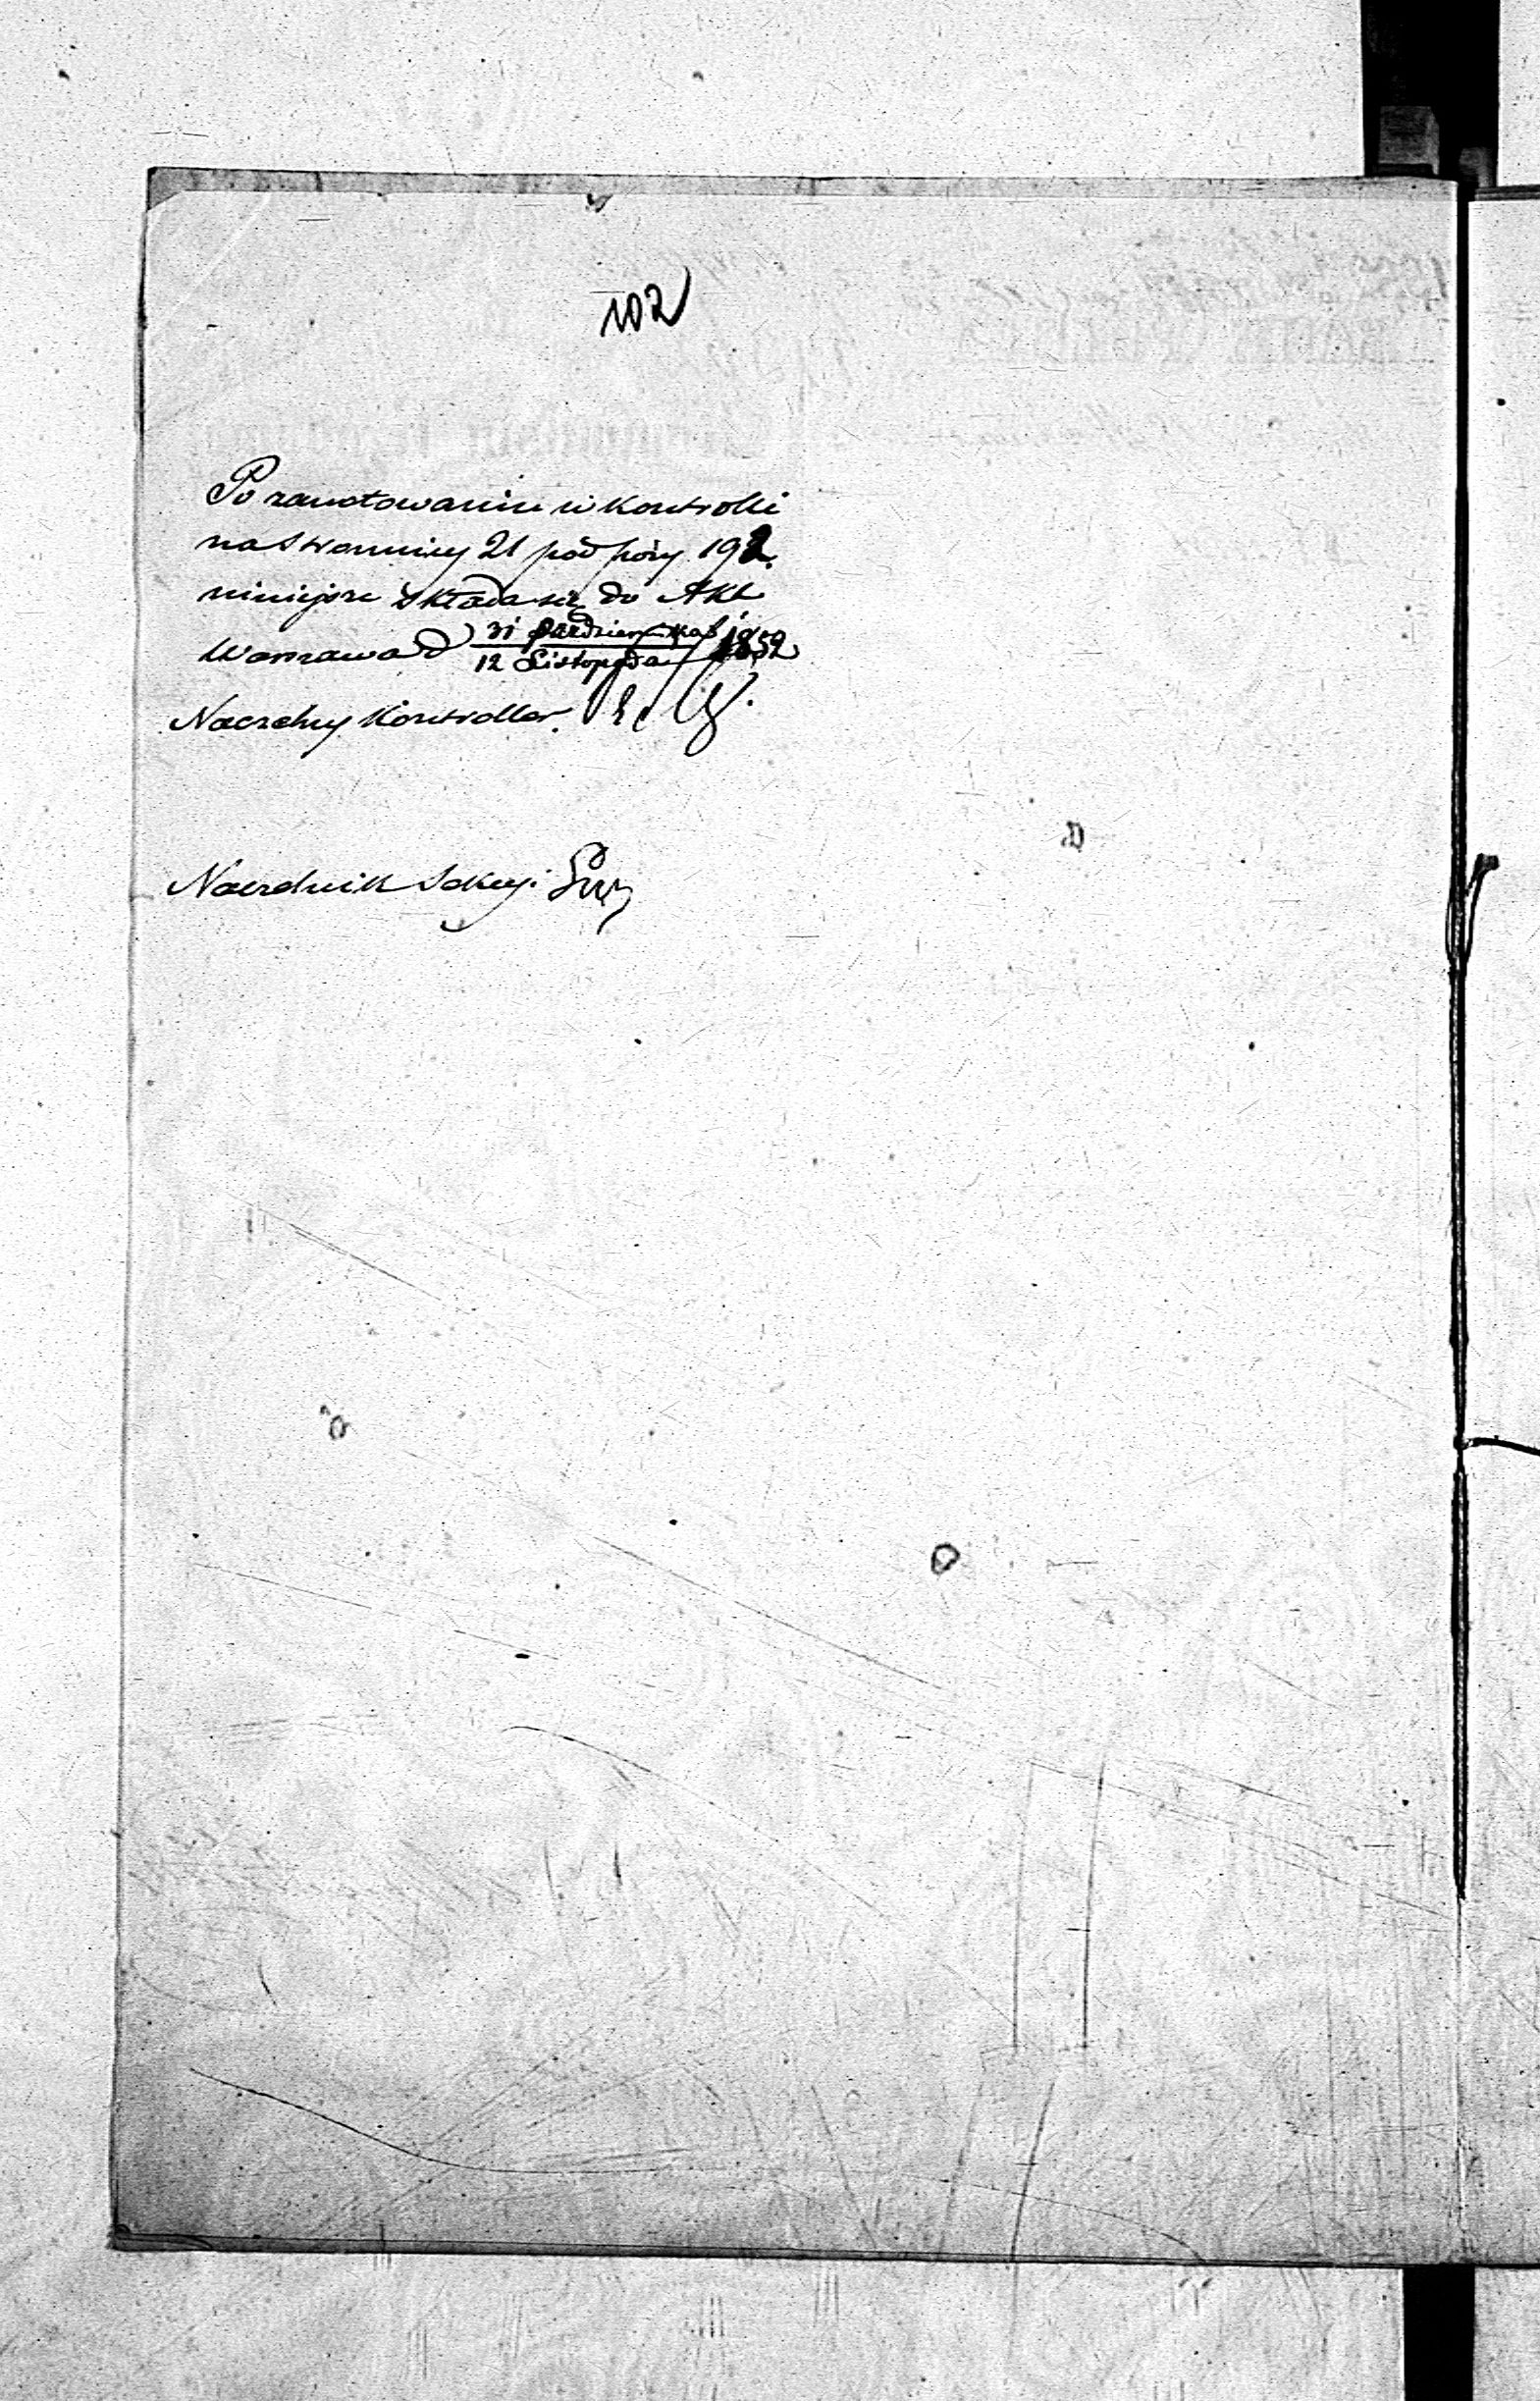 102
Po zanotowaniu w Kontrolli
na stronnicy 21 pod pozy. 192.
niniejsze składa się do Akt
Warszawa d 31 Października / 12 Listopada 1852
Naczelny Kontroller.
Naczelnik Sekcyi